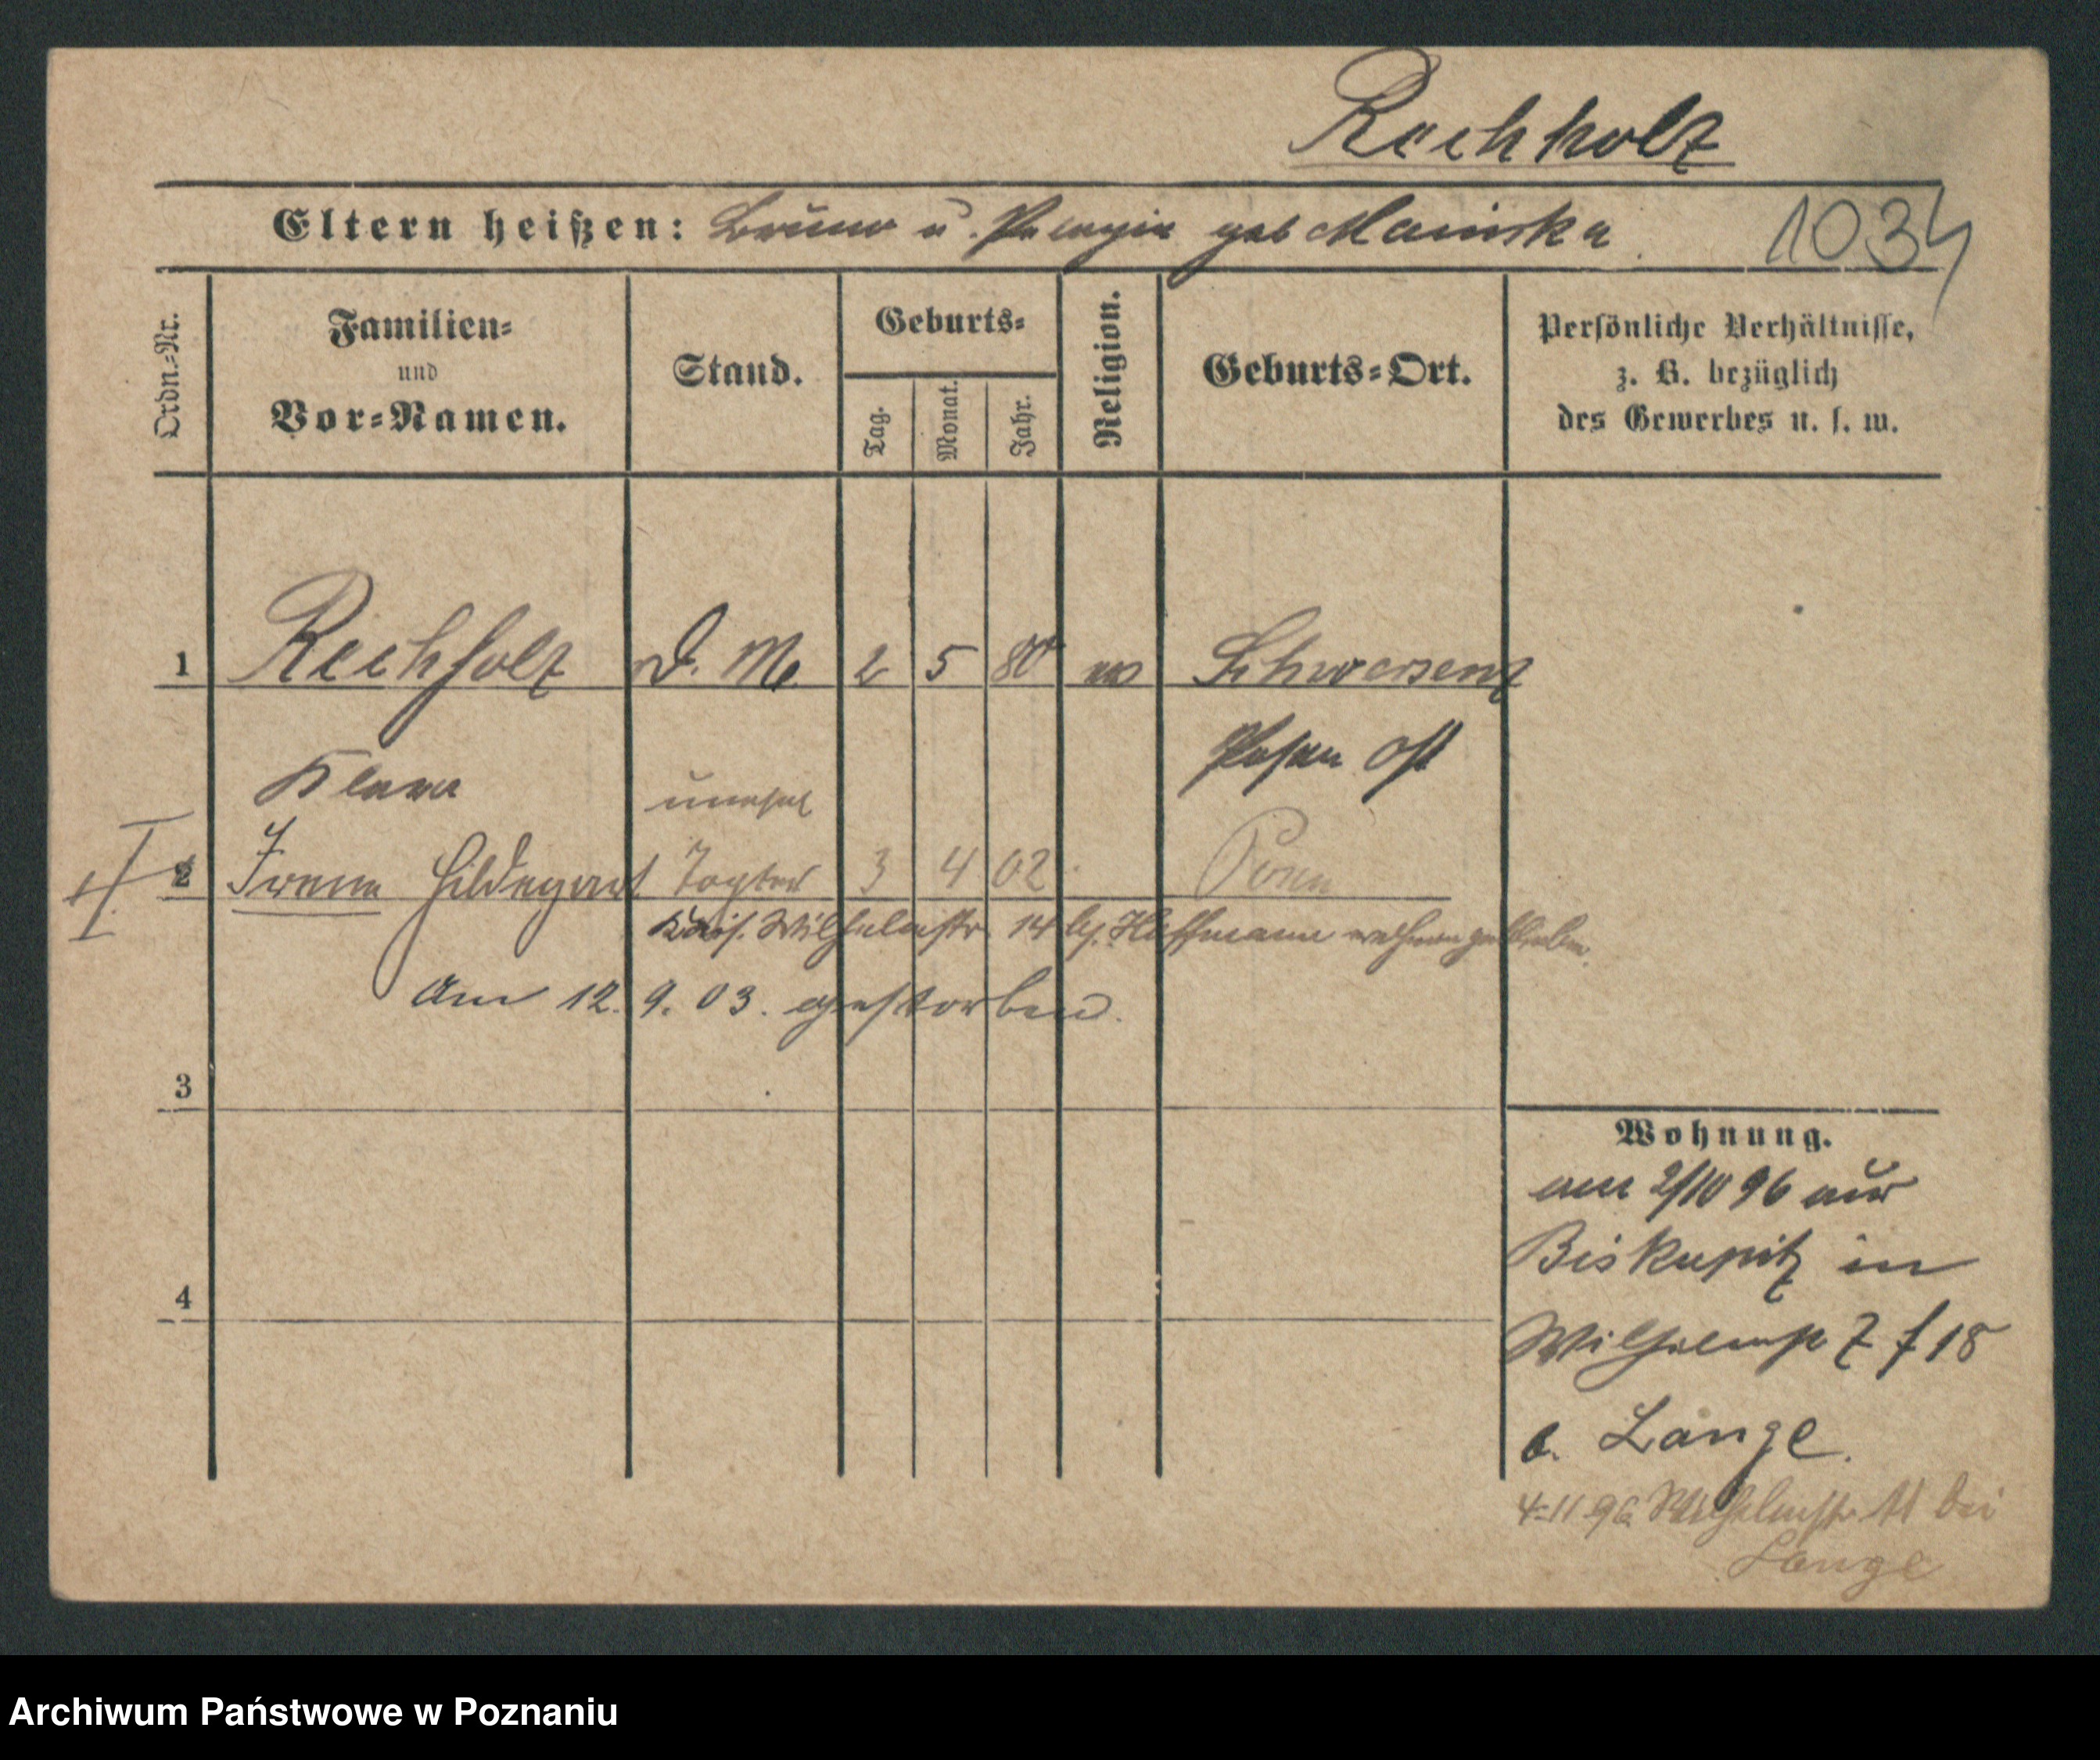 Rechholz
Eltern heißen: Bruno u. Pelagia geb Maniska 1034
Ordn.-Nr.
Familien-
und
Vor-Namen.
Stand.
Geburts-
Tag.
Monat.
Jahr.
Religion.
Geburts-Ort.
Persönliche Verhältnisse,
z. B. bezüglich
des Gewerbes u. s. w.
1 Rechholz D. M. 2 5 80 Schwersenz
Klara Posen Ost
unehel
2 Irene Hildegart Tochter 3 4 02 Posen
Kais. Wilhelmstr. 14 bei Hoffmann
am 12. 9. 03. gestorben.
3
4
Wohnung.
am 2/10 96 aus
Biskupitz in
Wilhelmstr 7 f 18
b. Lange.
4-11 96 Wilhelmstr. 11 bei
Lange
Archiwum Państwowe w Poznaniu